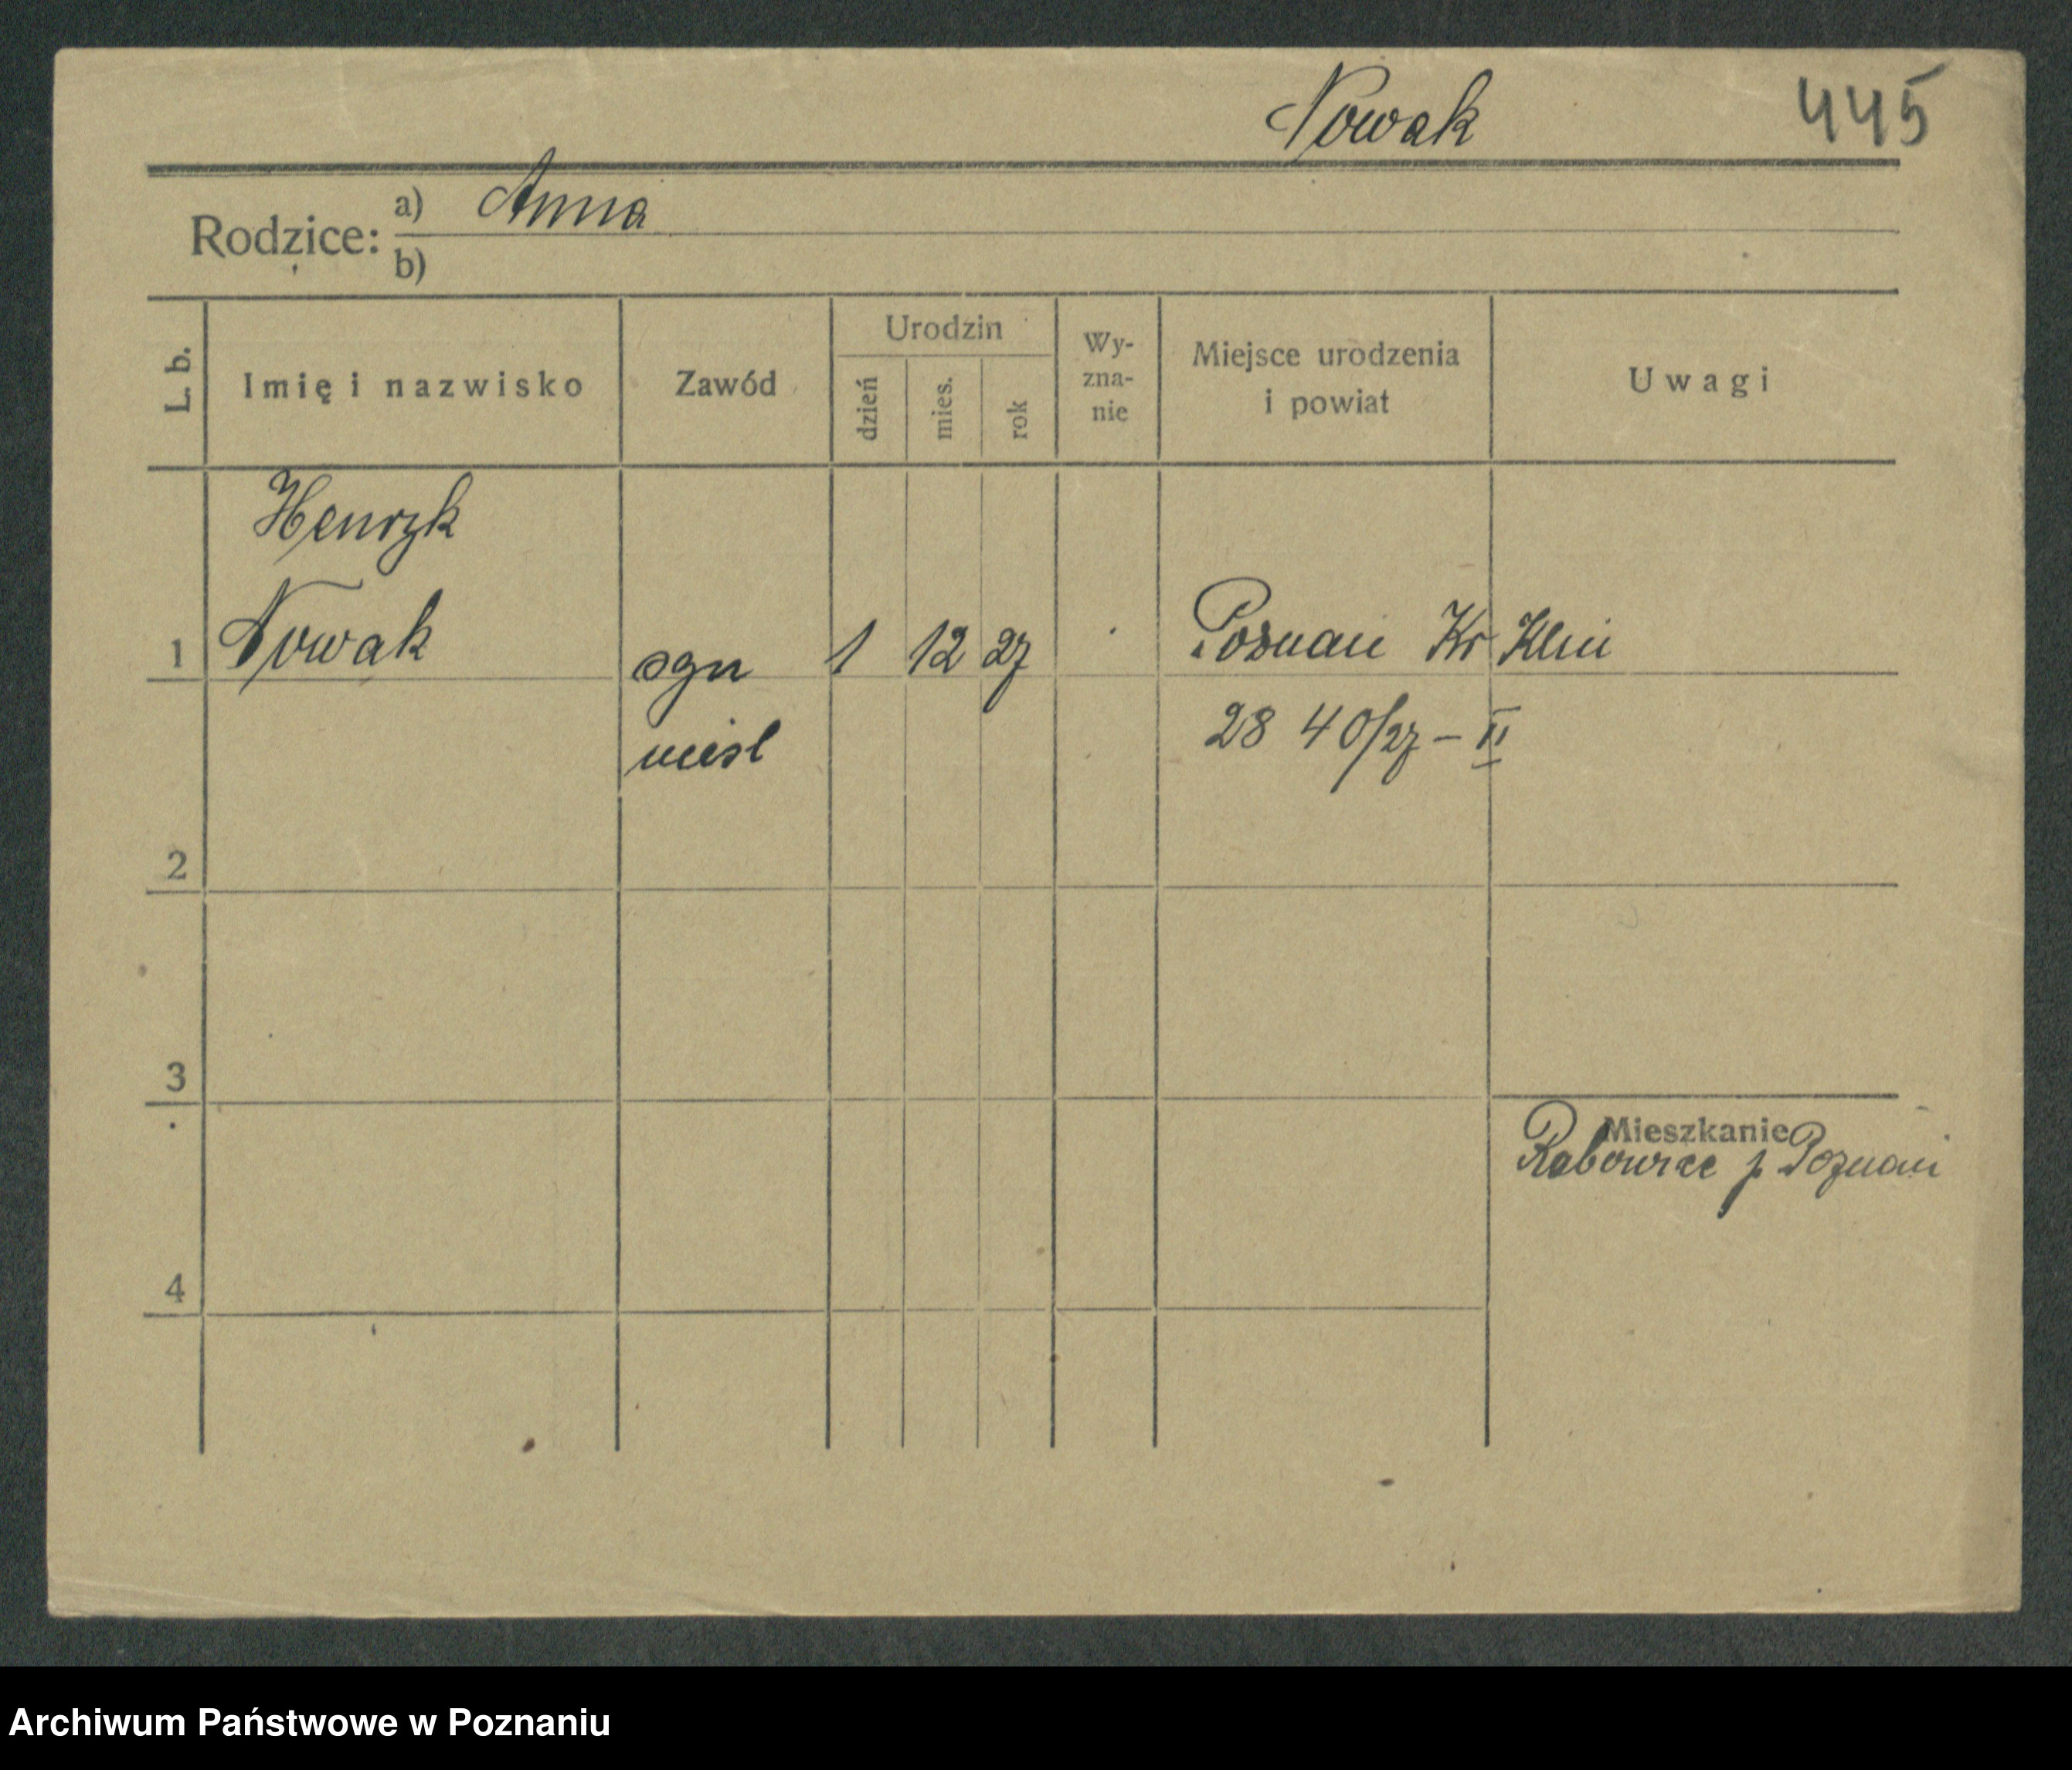 Nowak 445
Rodzice: a) Anna
b)
L. b. Imię i nazwisko Zawód Urodzin dzień mies. rok Wy-zna-nie Miejsce urodzenia i powiat Uwagi
Henryk
1 Nowak syn 1 12 27 Poznań Kr Klin
nieśl 28 40/27 – II
2
3
Mieszkanie
Rabowice p Poznań
4
Archiwum Państwowe w Poznaniu